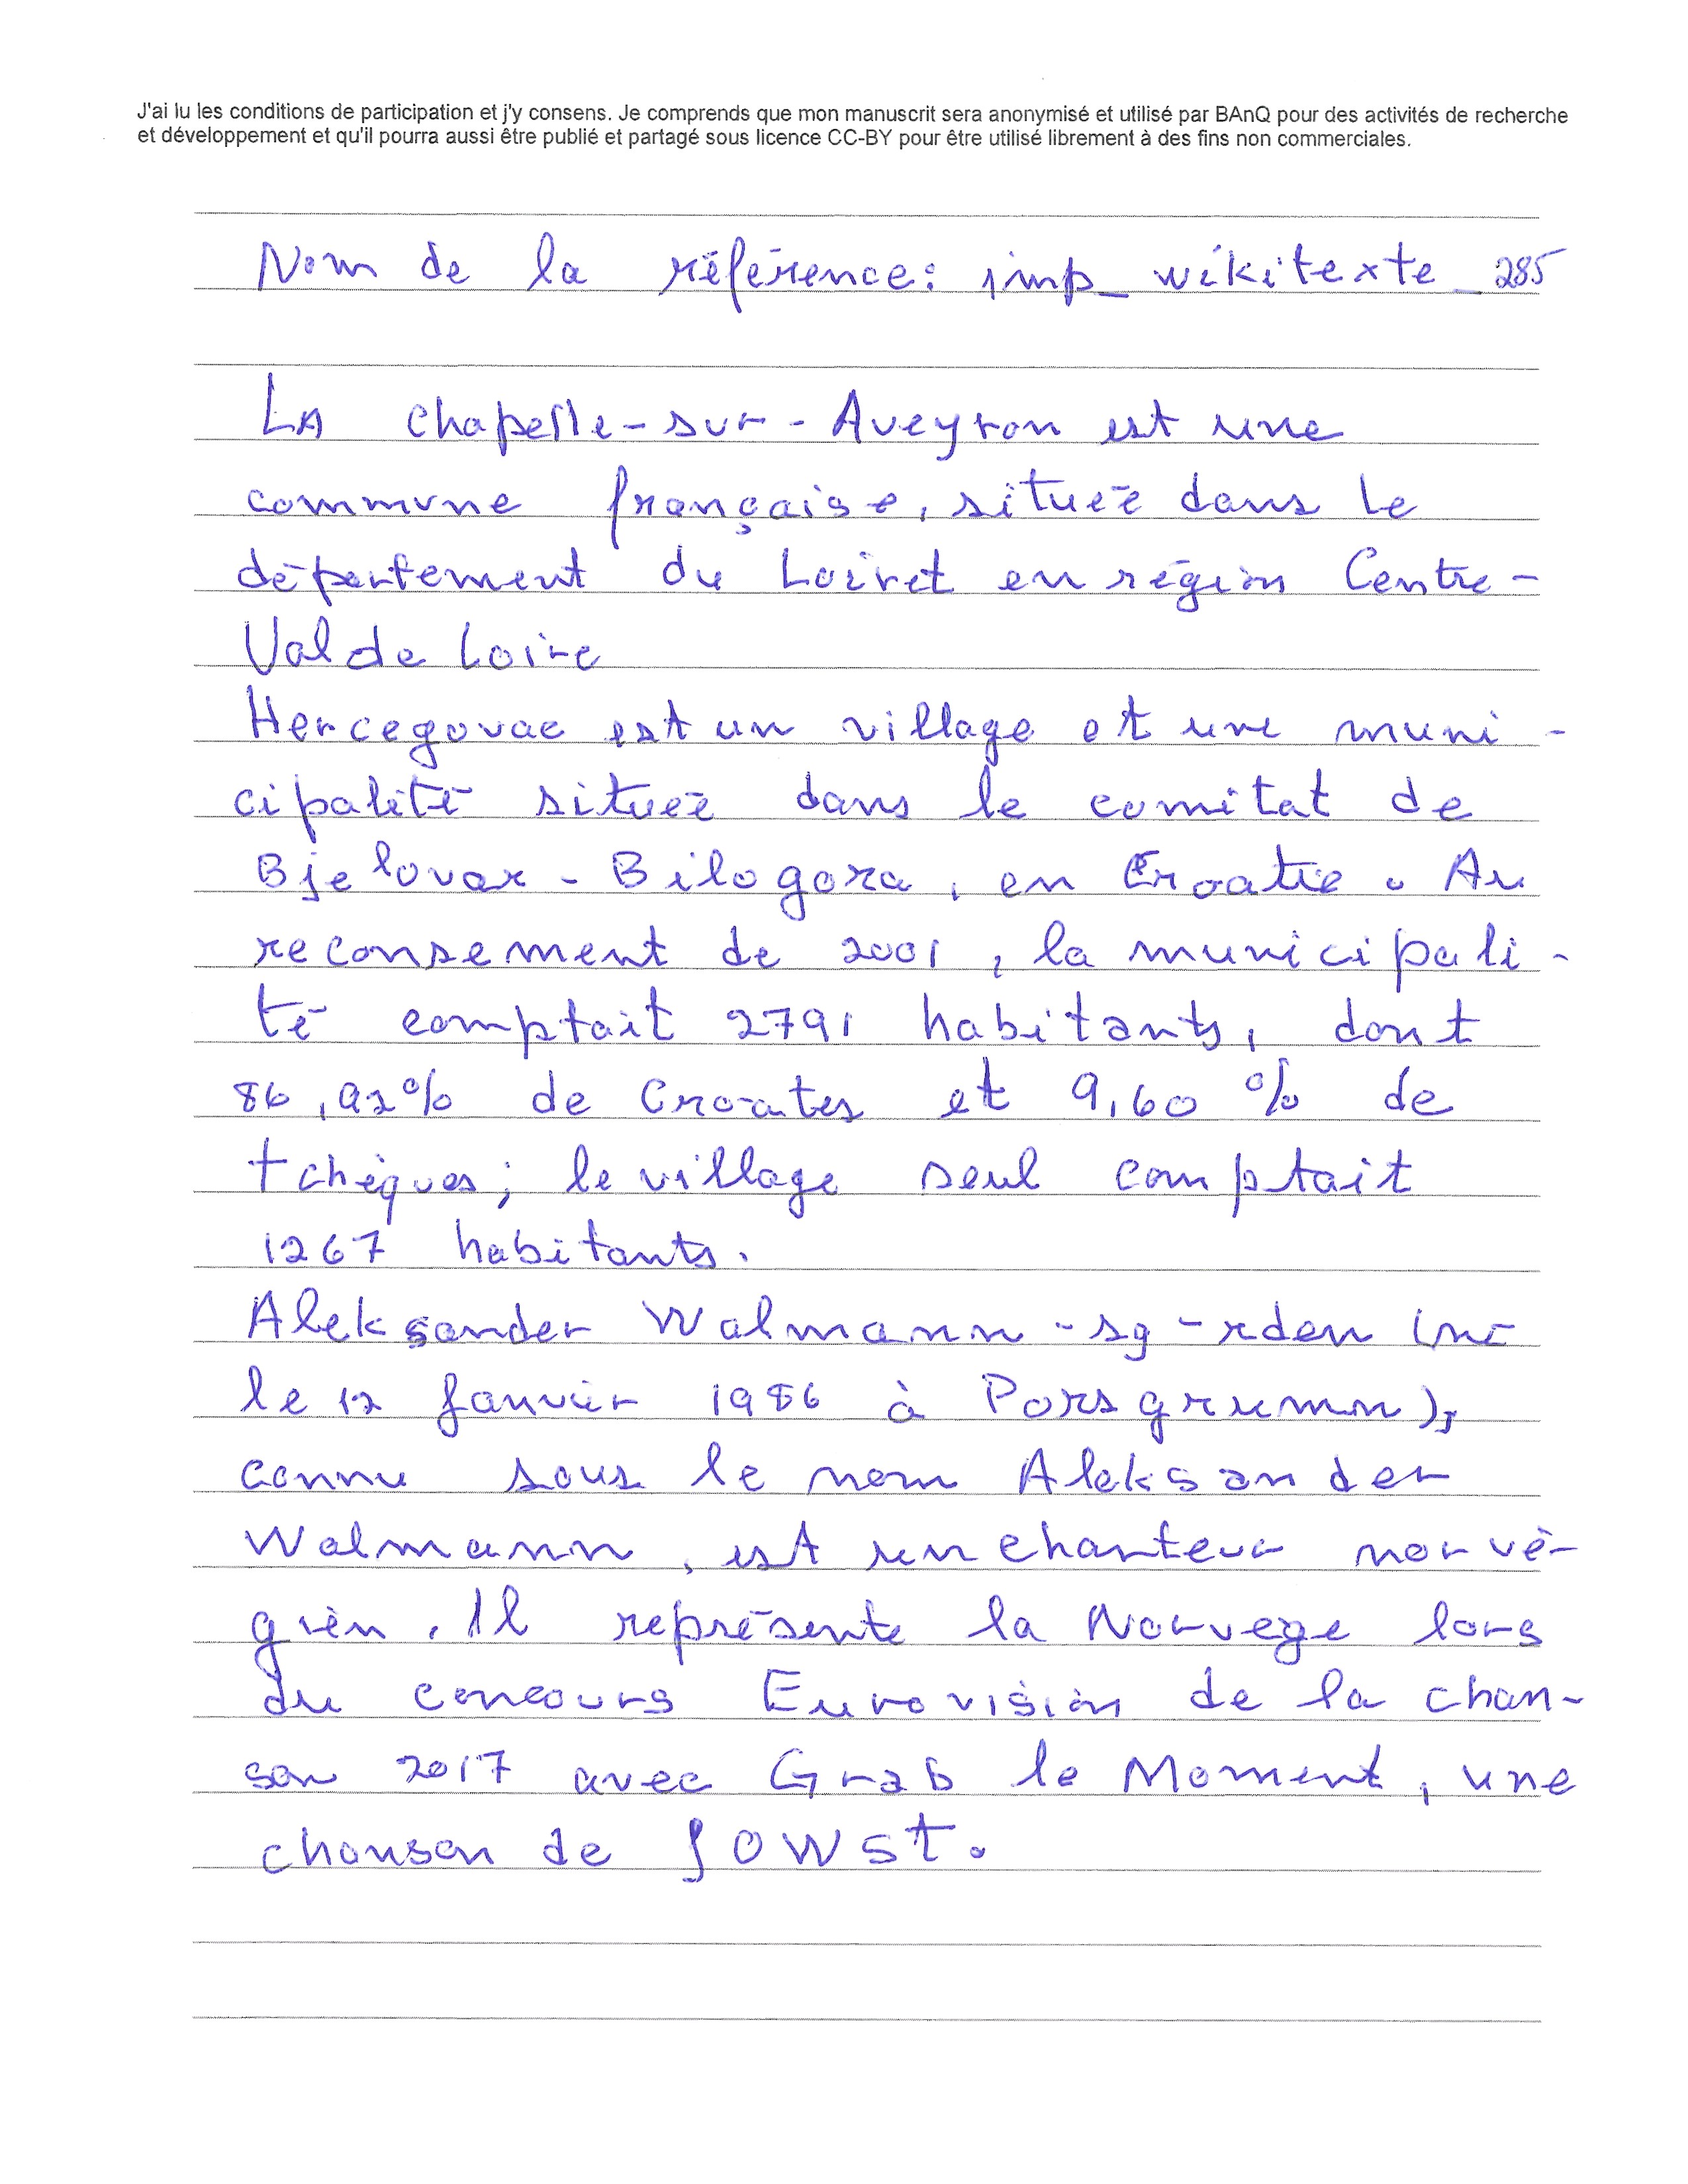 J'ai lu les conditions de participation et j'y consens. Je comprends que mon manuscrit sera anonymisé et utilisé par BAnQ pour des activités de recherche
et développement et qu'il pourra aussi être publié et partagé sous licence CC-BY pour être utilisé librement à des fins non commerciales.
Nom de la référence: imp_wikitexte_285
LA Chapelle-sur-Aveyron est une
commune française, située dans le
département du Loiret en région Centre-
Val de Loire
Hercegovac est un village et une muni-
cipalité située dans le comitat de
Bjelovar-Bilogora, en Croatie. Au
reconsement de 2001, la municipali-
té comptait 2791 habitants, dont
86,92% de Croates et 9,60 % de
tchèques; le village seul comptait
1267 habitants.
Aleksander Walmann-sg-rden (né
le 12 Janvier 1986 à Porsgrumn),
connu sous le nom Aleksander
Walmann, est un chanteur norvé-
gien. Il représente la Norvege lors
du concours Eurovision de la chan-
son 2017 avec Grab le Moment, une
chanson de JOWST.